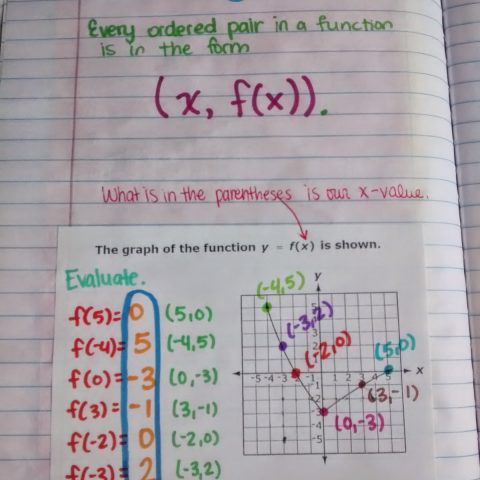 Every ordered pair in a function
is in the form
(x, f(x)).
What is in the parentheses is our x-value.
The graph of the function y = f(x) is shown.
Evaluate.
f(5)= 0 (5,0)
f(-4)= 5 (-4,5)
f(0)= -3 (0,-3)
f(3)= -1 (3,-1)
f(-2)= 0 (-2,0)
f(-3)= 2 (-3,2)
y
(-4,5)
(-3,2)
(-2,0)
(5,0)
x
(3,-1)
(0,-3)